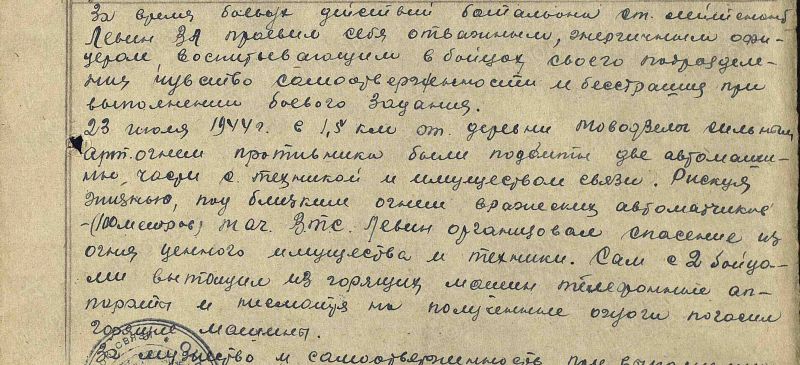 За время боевых действий батальона ст. лейтенант
Левин ЗА проявил себя отважным, энергичным офи-
цером, воспитывающим в бойцах своего подразделе-
ния чувство самоотверженности и бесстрашия при
выполнении боевого задания.
23 июля 1944 г. в 1,5 км от деревни сильным
Арт. огнем противника были подбиты две автомаши-
ны, части с техникой и имуществом связи. Рискуя
жизнью, под близким огнем вражеских автоматчиков
-(100 метров) нач. ВТС. Левин организовал спасение из
огня ценного имущества и техники. Сам с 2 бойца-
ми вытащил из горящих машин телефонные ап-
параты и несмотря на полученные ожоги погасил
горящие машины.
За мужество и самоотверженность при